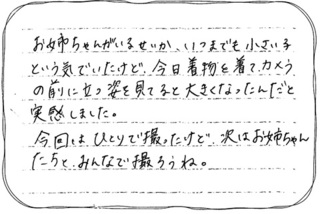 お姉ちゃんがいるせいか、いつまでも小さい子
という気でいたけど、今日着物を着て、カメラ
の前に立つ姿を見てると大きくなったんだと
実感しました。
今回はひとりで撮ったけど、次はお姉ちゃん
たちと、みんなで撮ろうね。